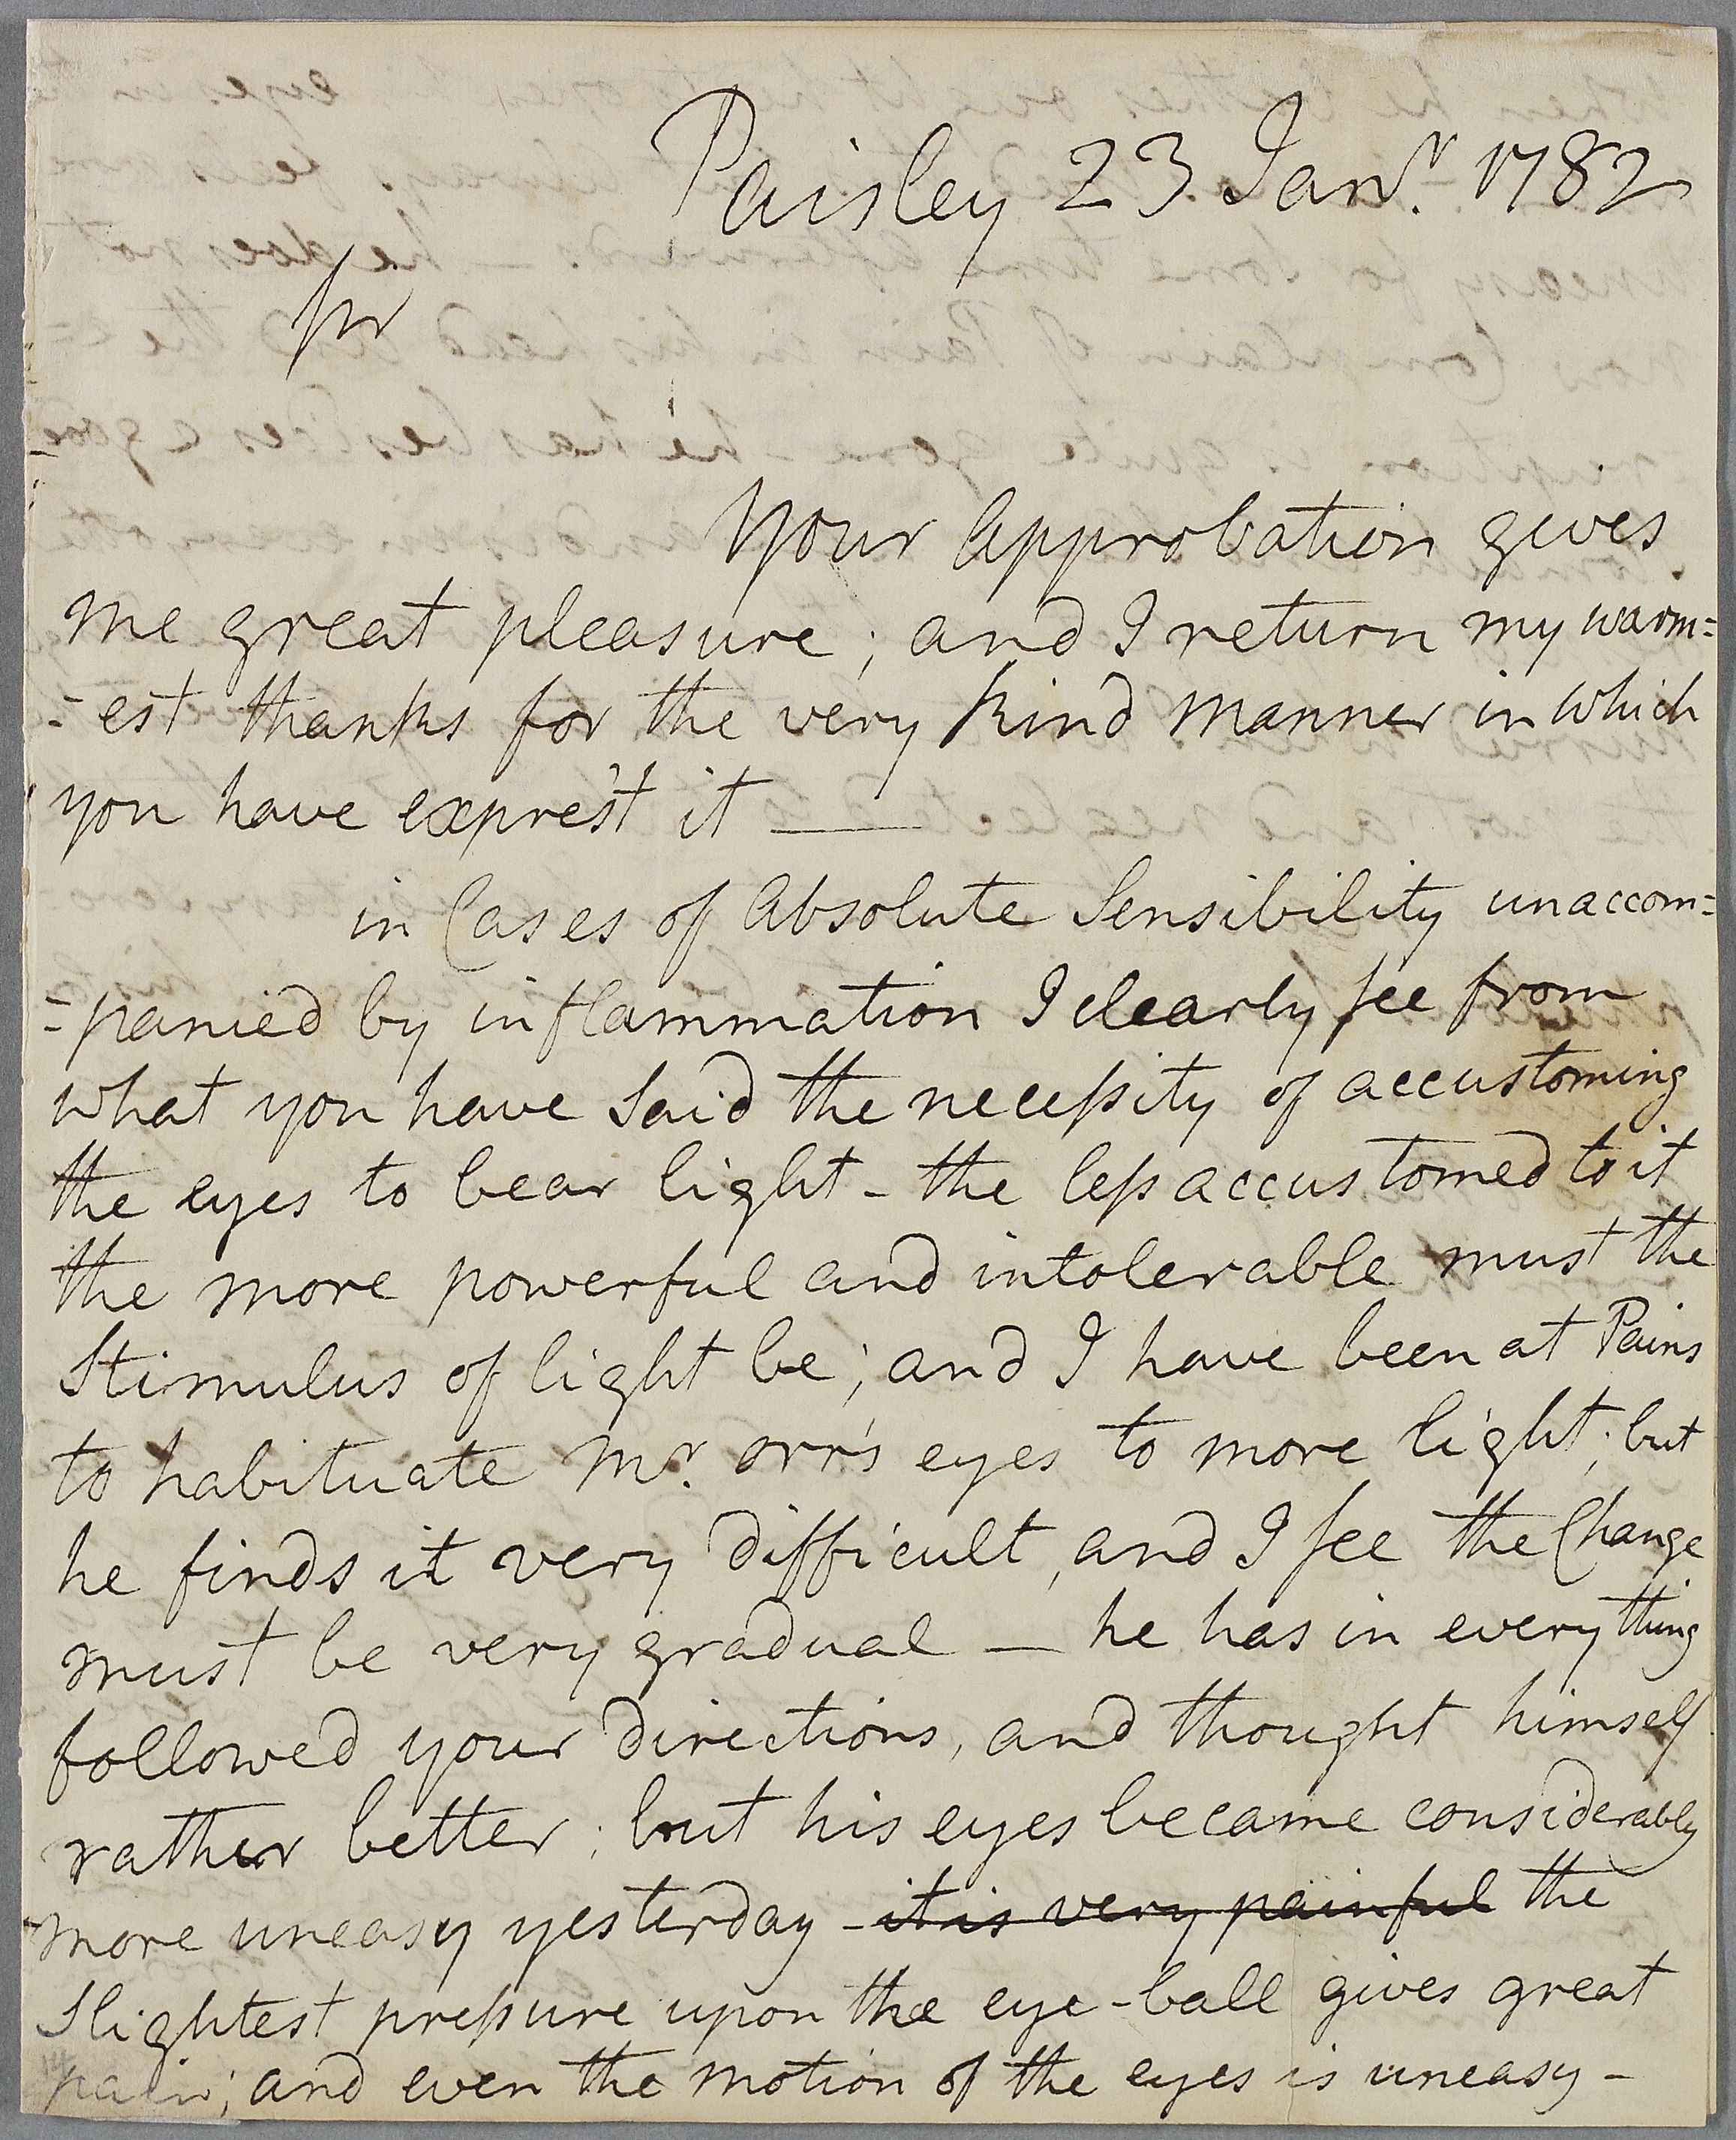 Paisley 23 Janr. 1782
Sir
Your Approbation gives
me great pleasure; and I return my warm=
=est thanks for the very kind manner in which
you have exprest it —
in Cases of Absolute Sensibility unaccom=
=panied by inflammation I clearly see from
what you have said the necessity of accustoming
the eyes to bear light - the less accustomed to it
the more powerful and intolerable must the
Stimulus of light be; and I have been at Pains
to habituate Mr. Orr's eyes to more light; but
he finds it very difficult, and I see the Change
must be very gradual — he has in every thing
followed your directions, and thought himself
rather better; but his eyes became considerably
more uneasy yesterday - it is very painful the
Slightest pressure upon the eye-ball gives great
pain; and even the motion of the eyes is uneasy -